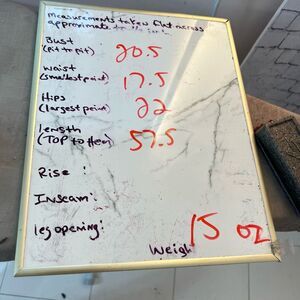 Measurements taken flat across
approximate
Bust
(pit to pit) 20.5
waist
(smallest point) 17.5
Hips
(largest point) 22
length
(TOP to Hem) 57.5
Rise:
Inseam:
leg opening:
Weigh 15 oz